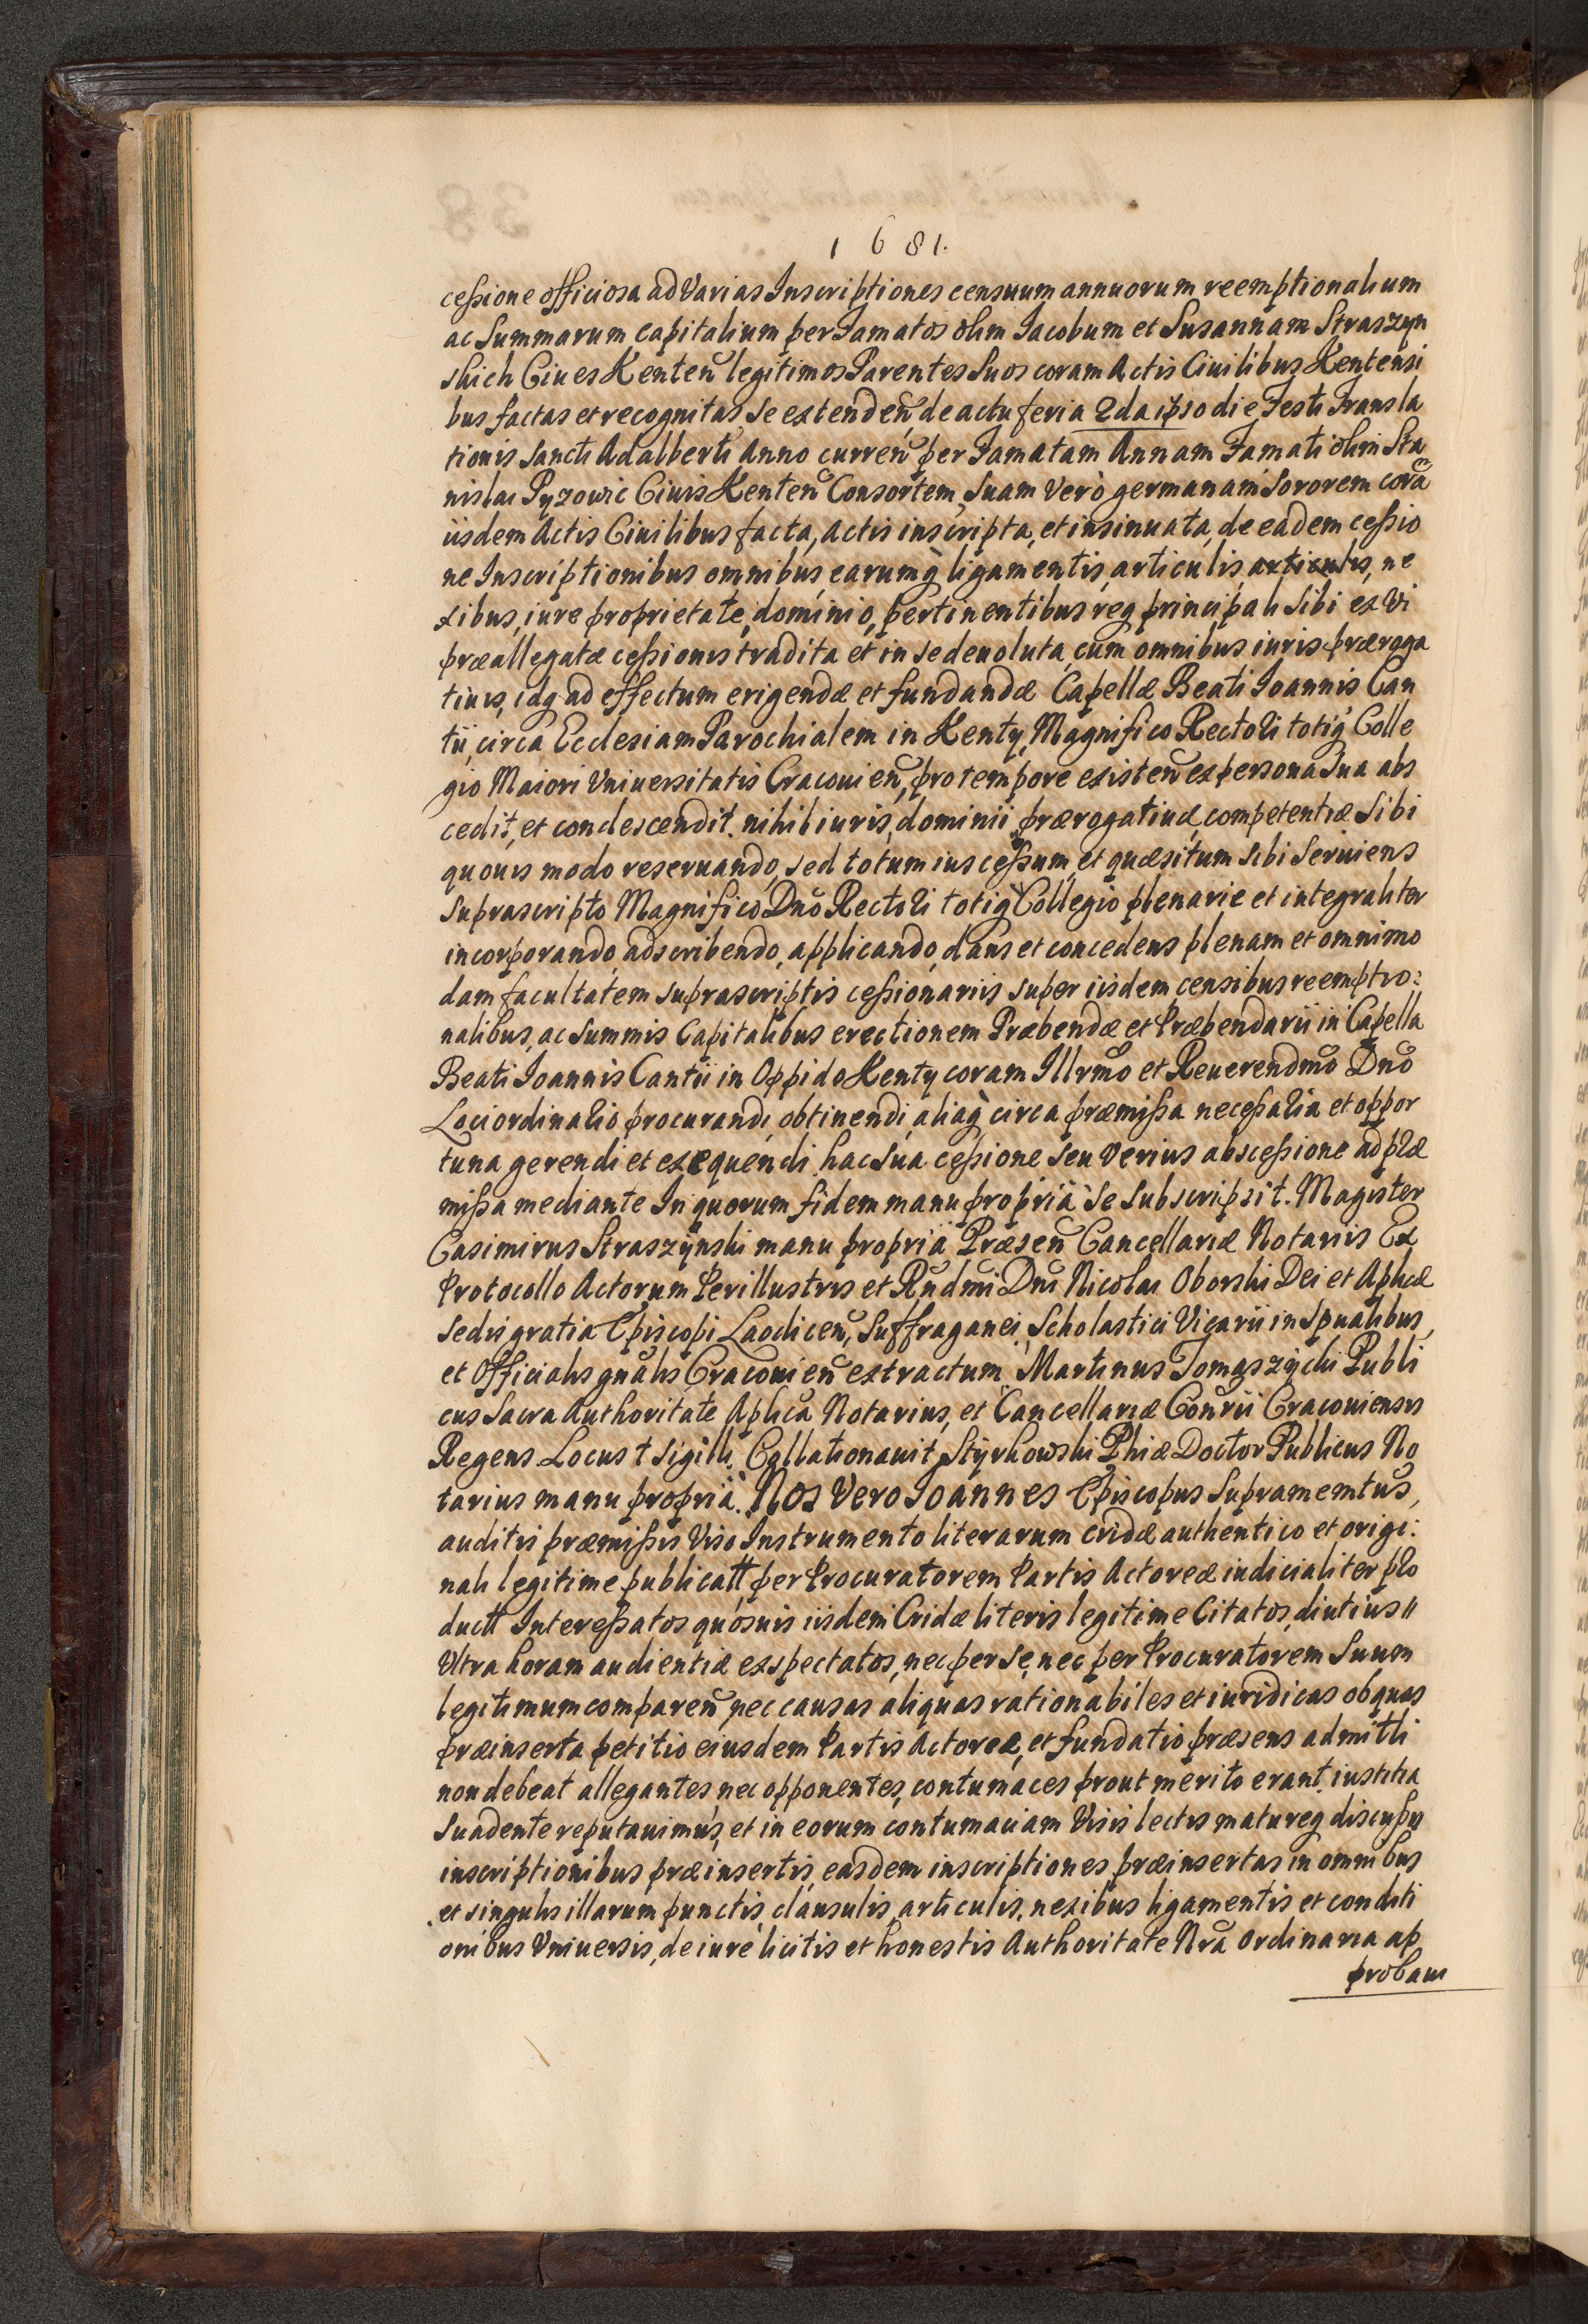 1681.
cessione officiosa ad Varias Inscriptiones censuum annuorum reemptionalium
ac Summarum capitalium per Famatos olim Iacobum et Susannam Straszyn
skich Ciues Kenteñ legitimos Parentes Suos coram Actis Ciuilibus Kentensi
bus factas et recognitas se extendeñ, de actu feria 2da ipso die Festi Transla
tionis Sancti Adalberti Anno curreñ per Famatam Annam Famati olim Sta
nislai Pyzowic Ciuis Kenteñ Consortem, Suam verò germanam Sororem corã
iisdem Actis Ciuilibus facta, actis inscripta, et insinuata, de eadem cessio
ne Inscriptionibus omnibus, earumq̀ ligamentis, articulis, articulis, ne
xibus, iure proprietate, dominio, pertinentibus, req principali Sibi ex Vi
præallegatæ cessionis tradita et in se deuoluta, cum omnibus iuris præroga
tiuis, idq ad effectum erigendæ et fundandæ Capellæ Beati Ioannis Can
tii, circa Ecclesiam Parochialem in Kenty, Magnifico Rectori totiq Colle
gio Maiori Vniuersitatis Cracouieñ, pro tempore existeñ ex persona Sua abs
cedit, et condescendit. nihil iuris, dominii prærogatiuæ, competentiæ Sibi
quouis modo reseruando, sed totum ius cessum, et quæsitum sibi seruiens
suprascripto Magnifico Dño Rectori totiq̀ Collegio plenarie et integraliter
incorporando, adscribendo, applicando, dans et concedens plenam et omnimo
dam facultatem suprascriptis cessionariis super iisdem censibus reemptio:
nalibus, ac summis Capitalibus erectionem Præbendæ et Præbendarii in Capella
Beati Ioannis Cantii in Oppido Kenty coram Illrmo et Reuerendmo Dño
Loci ordinario procurandi, obtinendi, aliaq̀ circa præmissa necessaria et oppor
tuna gerendi et exequendi hac sua cessione seu verius abscessione ad præ
missa mediante In quorum fidem manu propriâ se subscripsit. Magister
Casimirus Straszynski manu propria Præseñ Cancellariæ Notariis Ex
Protocollo Actorum Perillustris et Rñdmi Dñi Nicolai Oborski Dei et Aplicæ
sedis gratia Episcopi Laodiceñ, Suffraganei, Scholastici Vicarii in Spualibus,
et Officialis gñalis Cracouieñ extractum Martinus Tomaszycki Publi
cus Sacra Authoritate Aplica Notarius, et Cancellariæ Conrii Cracouiensis
Regens Locus † Sigilli. Collationauit Styrkowski Phiæ Doctor Publicus No
tarius manu propriâ. Nos Vero Ioannes Episcopus Supramemtus,
auditis præmissis Viso Instrumento literarum cridæ authentico et origi:
nali legitime publicatt per Procuratorem Partis Actoreæ iudicialiter pro
ductt Interessatos quosuis iisdem Cridæ literis legitime Citatos, diutius
Vltra horam audientiæ exspectatos, nec per se, nec per Procuratorem Suum
legitimum compareñ nec causas aliquas rationabiles et iuridicas ob quas
præinserta petitio eiusdem Partis Actoreæ, et fundatio præsens admitti
non debeat allegantes, nec opponentes, contumaces prout merito erant iustitia
Suadente reputauimus, et in eorum contumaciam Visis lectis matureq discussis
inscriptionibus præinsertis, easdem inscriptiones præinsertas in omnibus
et singulis illarum punctis, clausulis, articulis, nexibus ligamentis et conditi
onibus Vniuersis, de iure licitis et honestis Authoritate Nrã Ordinaria ap
probam